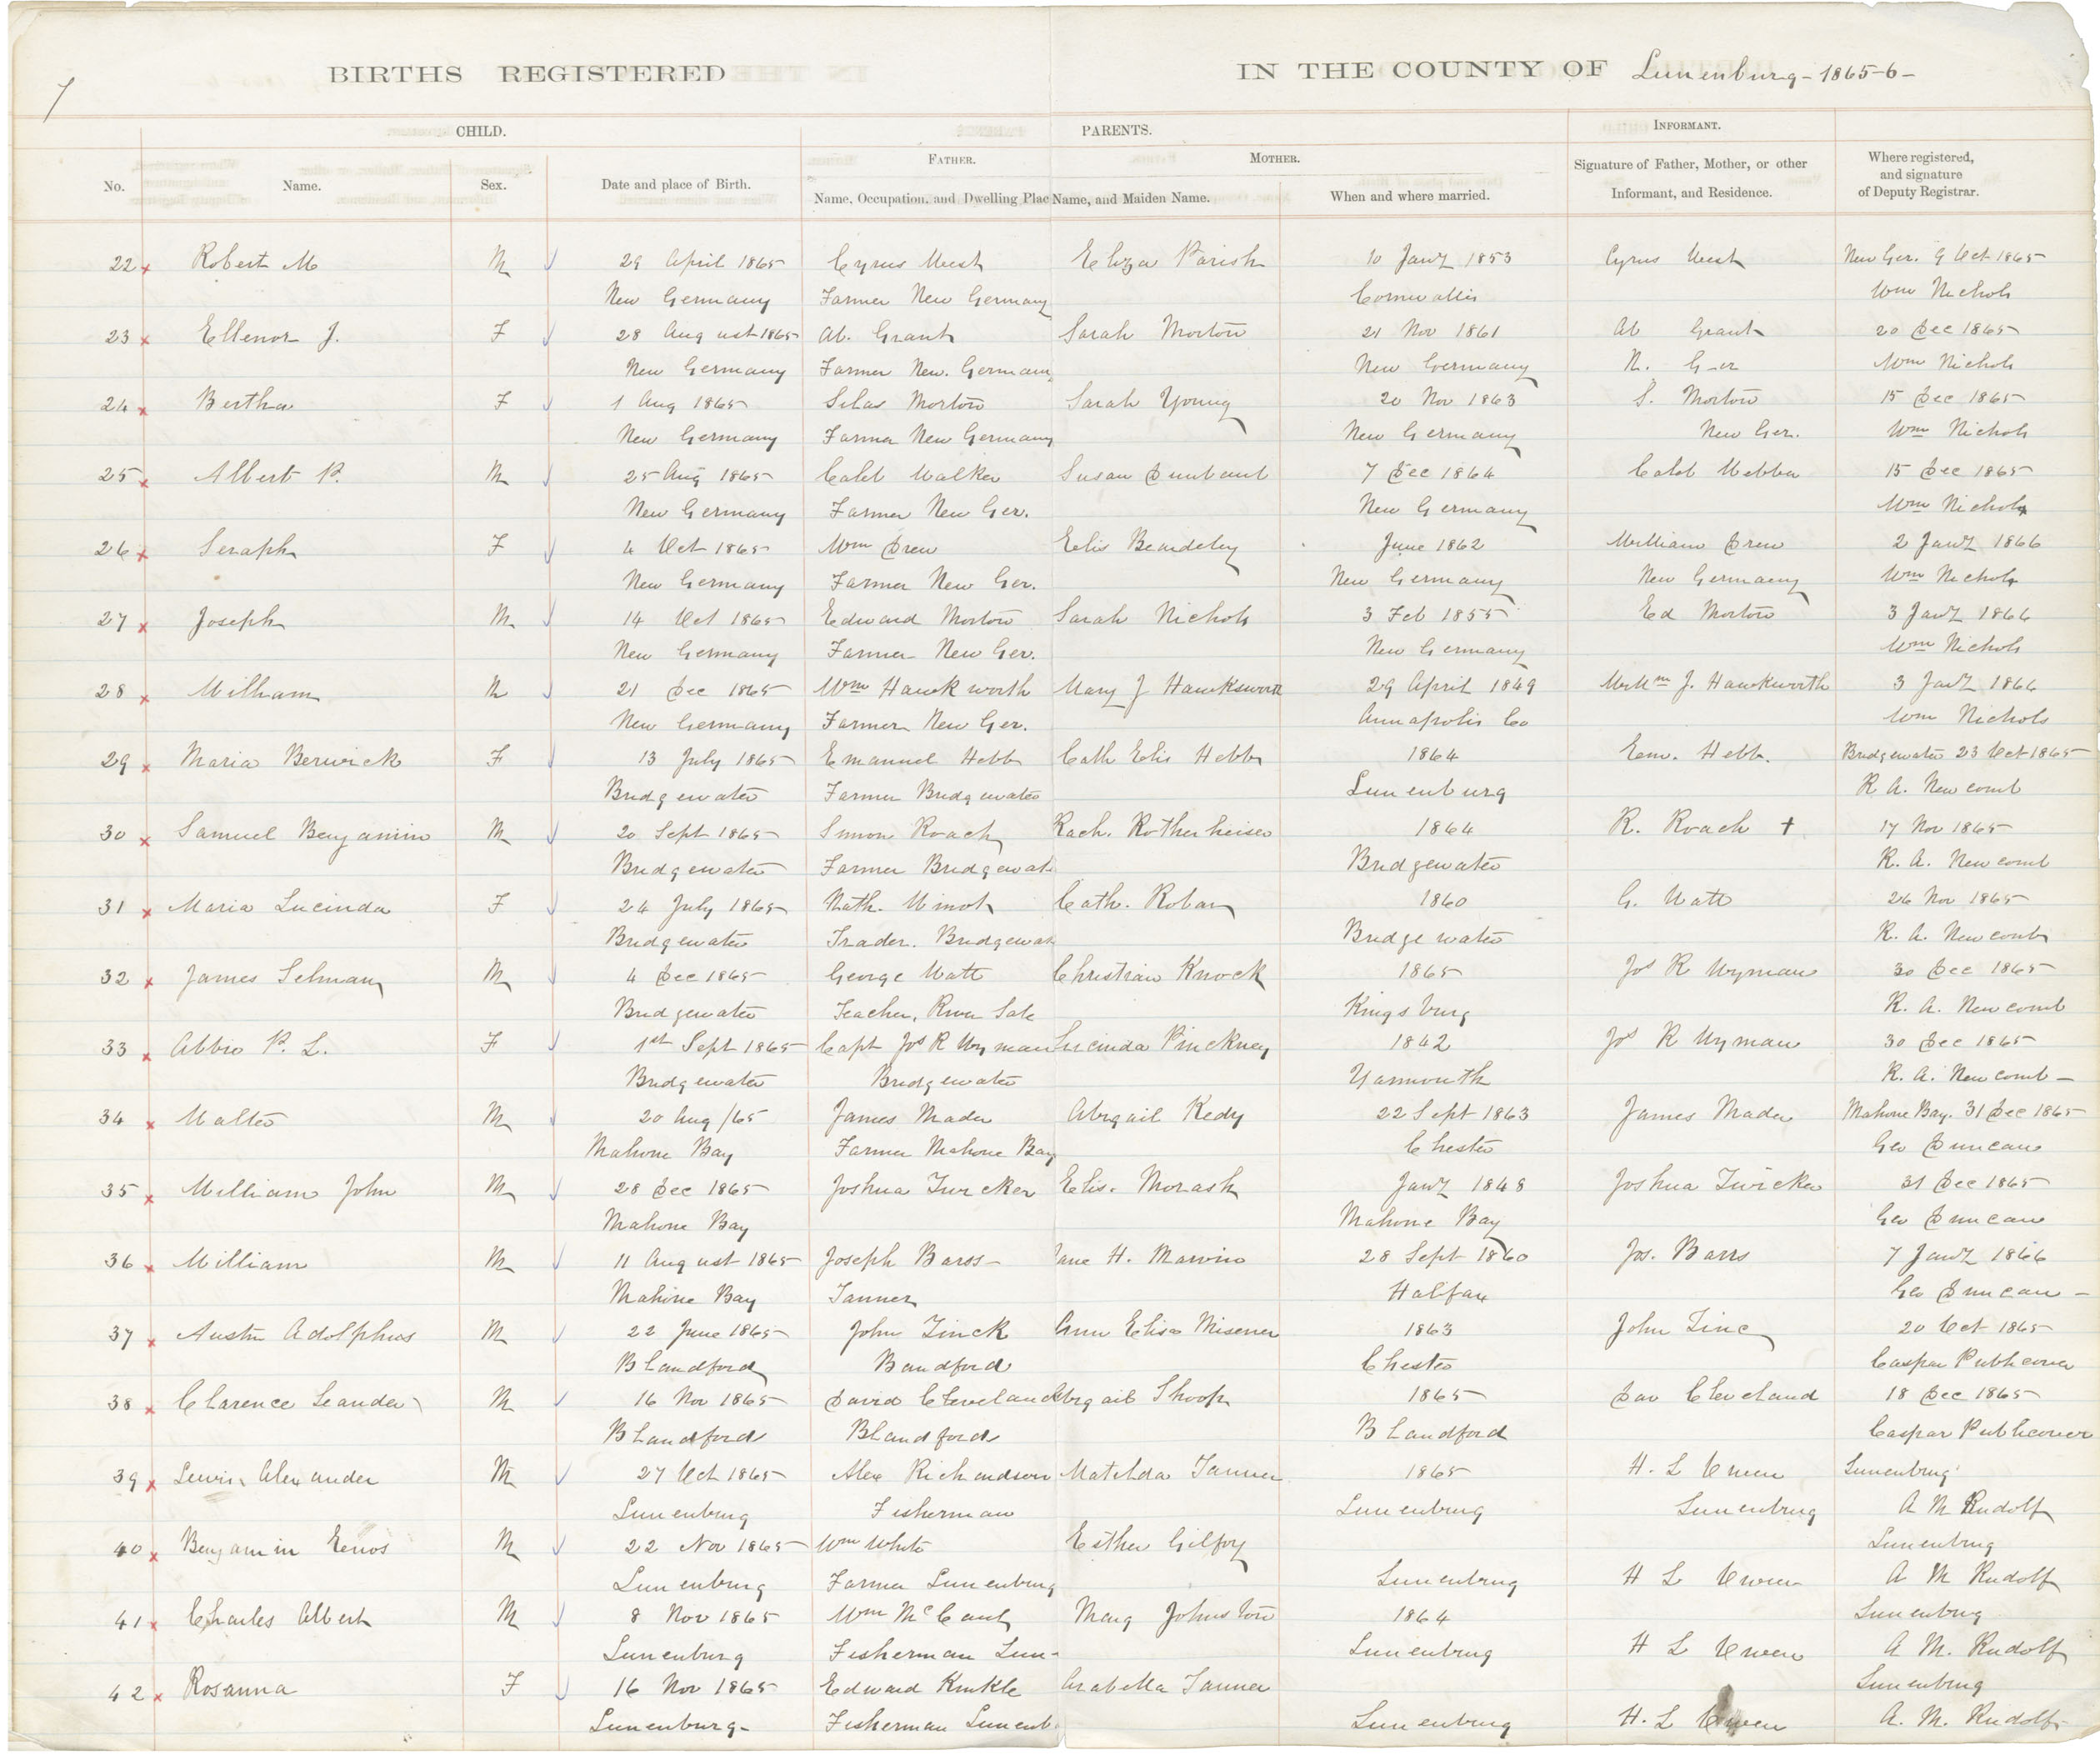 7
BIRTHS REGISTERED IN THE COUNTY OF Lunenburg - 1865-6 -
CHILD. PARENTS. INFORMANT.
FATHER. MOTHER.
No. Name. Sex. Date and place of Birth. Name, Occupation, and Dwelling Plac Name, and Maiden Name. When and where married. Signature of Father, Mother, or other Informant, and Residence. Where registered, and signature of Deputy Registrar.
22 Robert M M 29 April 1865 Cyrus West Eliza Parish 10 Jany 1853 Cyrus West New Ger. 9 Oct 1865
New Germany Farmer New Germany Cornwallis Wm Nichols
23 Ellenor J. F 28 August 1865 Ab. Grant Sarah Morton 21 Nov 1861 Ab Grant 20 Dec 1865
New Germany Farmer New. Germany New Germany N. Ger Wm Nichols
24 Bertha F 1 Aug 1865 Silas Morton Sarah Young 20 Nov 1863 S. Morton 15 Dec 1865
New Germany Farmer New Germany New Germany New Ger. Wm Nichols
25 Albert P. M 25 Aug 1865 Caleb Walker Susan 7 Dec 1864 Caleb Webber 15 Dec 1865
New Germany Farmer New Ger. New Germany Wm Nichols
26 Seraph F 4 Oct 1865 Wm Drew Elis June 1862 William Drew 2 Jany 1866
New Germany Farmer New Ger. New Germany New Germany Wm Nichols
27 Joseph M 14 Oct 1865 Edward Morton Sarah Nichols 3 Feb 1855 Ed Morton 3 Jany 1866
New Germany Farmer New Ger. New Germany Wm Nichols
28 William M 21 Dec 1865 Wm Hawkworth Mary J Hawksworth 29 April 1849 J. Hawkworth 3 Jany 1866
New Germany Farmer New Ger. Annapolis Co Wm Nichols
29 Maria Berwick F 13 July 1865 Emanuel Hebb Cath Elis Hebb 1864 Em. Hebb. Bridgewater 23 Oct 1865
Bridgewater Farmer Bridgewater Lunenburg R A. Newcomb
30 Samuel Benjamin M 20 Sept 1865 Simon Roach Rach. Rotherheiser 1864 R. Roach + 17 Nov 1865
Bridgewater Farmer Bridgewat Bridgewater R. A. Newcomb
31 Maria Lucinda F 24 July 1865 Nath. Cath. Robar 1860 G. Watt 26 Nov 1865
Bridgewater Trader. Bridgewat Bridgewater R. A. Newcomb
32 James Selman M 4 Dec 1865 George Watt Christian Knock 1865 Jos R Wyman 30 Dec 1865
Bridgewater Teacher, River Kingsburg R. A. Newcomb
33 Abbie P. L. F 1st Sept 1865 Capt Jos R Wyman Lucinda Pinckney 1842 Jos R Wyman 30 Dec 1865
Bridgewater Bridgewater Yarmouth R. A. Newcomb -
34 Walter M 20 Aug /65 James Mader Abigail Kedy 22 Sept 1863 James Mader Mahone Bay. 31 Dec 1865
Mahone Bay Farmer Mahone Bay Chester Geo Duncan
35 William John M 28 Dec 1865 Joshua Zwicker Elis. Morash Jany 1848 Joshua Zwicker 31 Dec 1865
Mahone Bay Mahone Bay Geo Duncan
36 William M 11 August 1865 Joseph Barss - Jane H. Marvin 28 Sept 1860 Jos. Barss 7 Jany 1866
Mahone Bay Tanner Halifax Geo Duncan -
37 Austin Adolphus M 22 June 1865 John Zinck Ann Elisa Misener 1863 John Zinc 20 Oct 1865
Blandford Bandford Chester Caspar Publicover
38 Clarence Leander M 16 Nov 1865 David Cleveland Abigail Shoop 1865 Dav Cleveland 18 Dec 1865
Blandford Blandford Blandford Caspar Publicover
39 Lewis Alexander M 27 Oct 1865 Alex Richardson Matilda Tanner 1865 H. L Owen Lunenburg
Lunenburg Fisherman Lunenburg Lunenburg A M Rudolf
40 Benjamin Eenos M 22 Nov 1865 Wm White Esther Gilfoy Lunenburg
Lunenburg Farmer Lunenburg Lunenburg H L Owen A M Rudolf
41 Charles Albert M 8 Nov 1865 Wm Marg Johnston 1864 Lunenburg
Lunenburg Fisherman Lun- Lunenburg H L Owen A M. Rudolf
42 Rosanna F 16 Nov 1865 Edward Knikle Arabella Tanner Lunenburg
Lunenburg - Fisherman Lunenb Lunenburg H. L Owen A. M. Rudolf